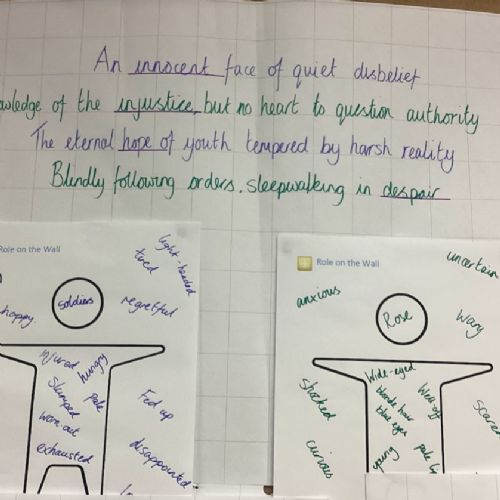 An innocent face of quiet disbelief
wledge of the injustice, but no heart to question authority
The eternal hope of youth tempered by harsh reality
Blindly following orders. sleepwalking in despair
Role on the Wall
light-headed
tired
soldiers
happy.
regretful
injured
hungry
Slumped
pale
worn out
exhausted
Fed up
disappointed
Role on the Wall
uncertain
anxious
Rose
Wary
Wide-eyed
blonde hair
Well off
blue eyes
young
pale
shocked
curious
scare